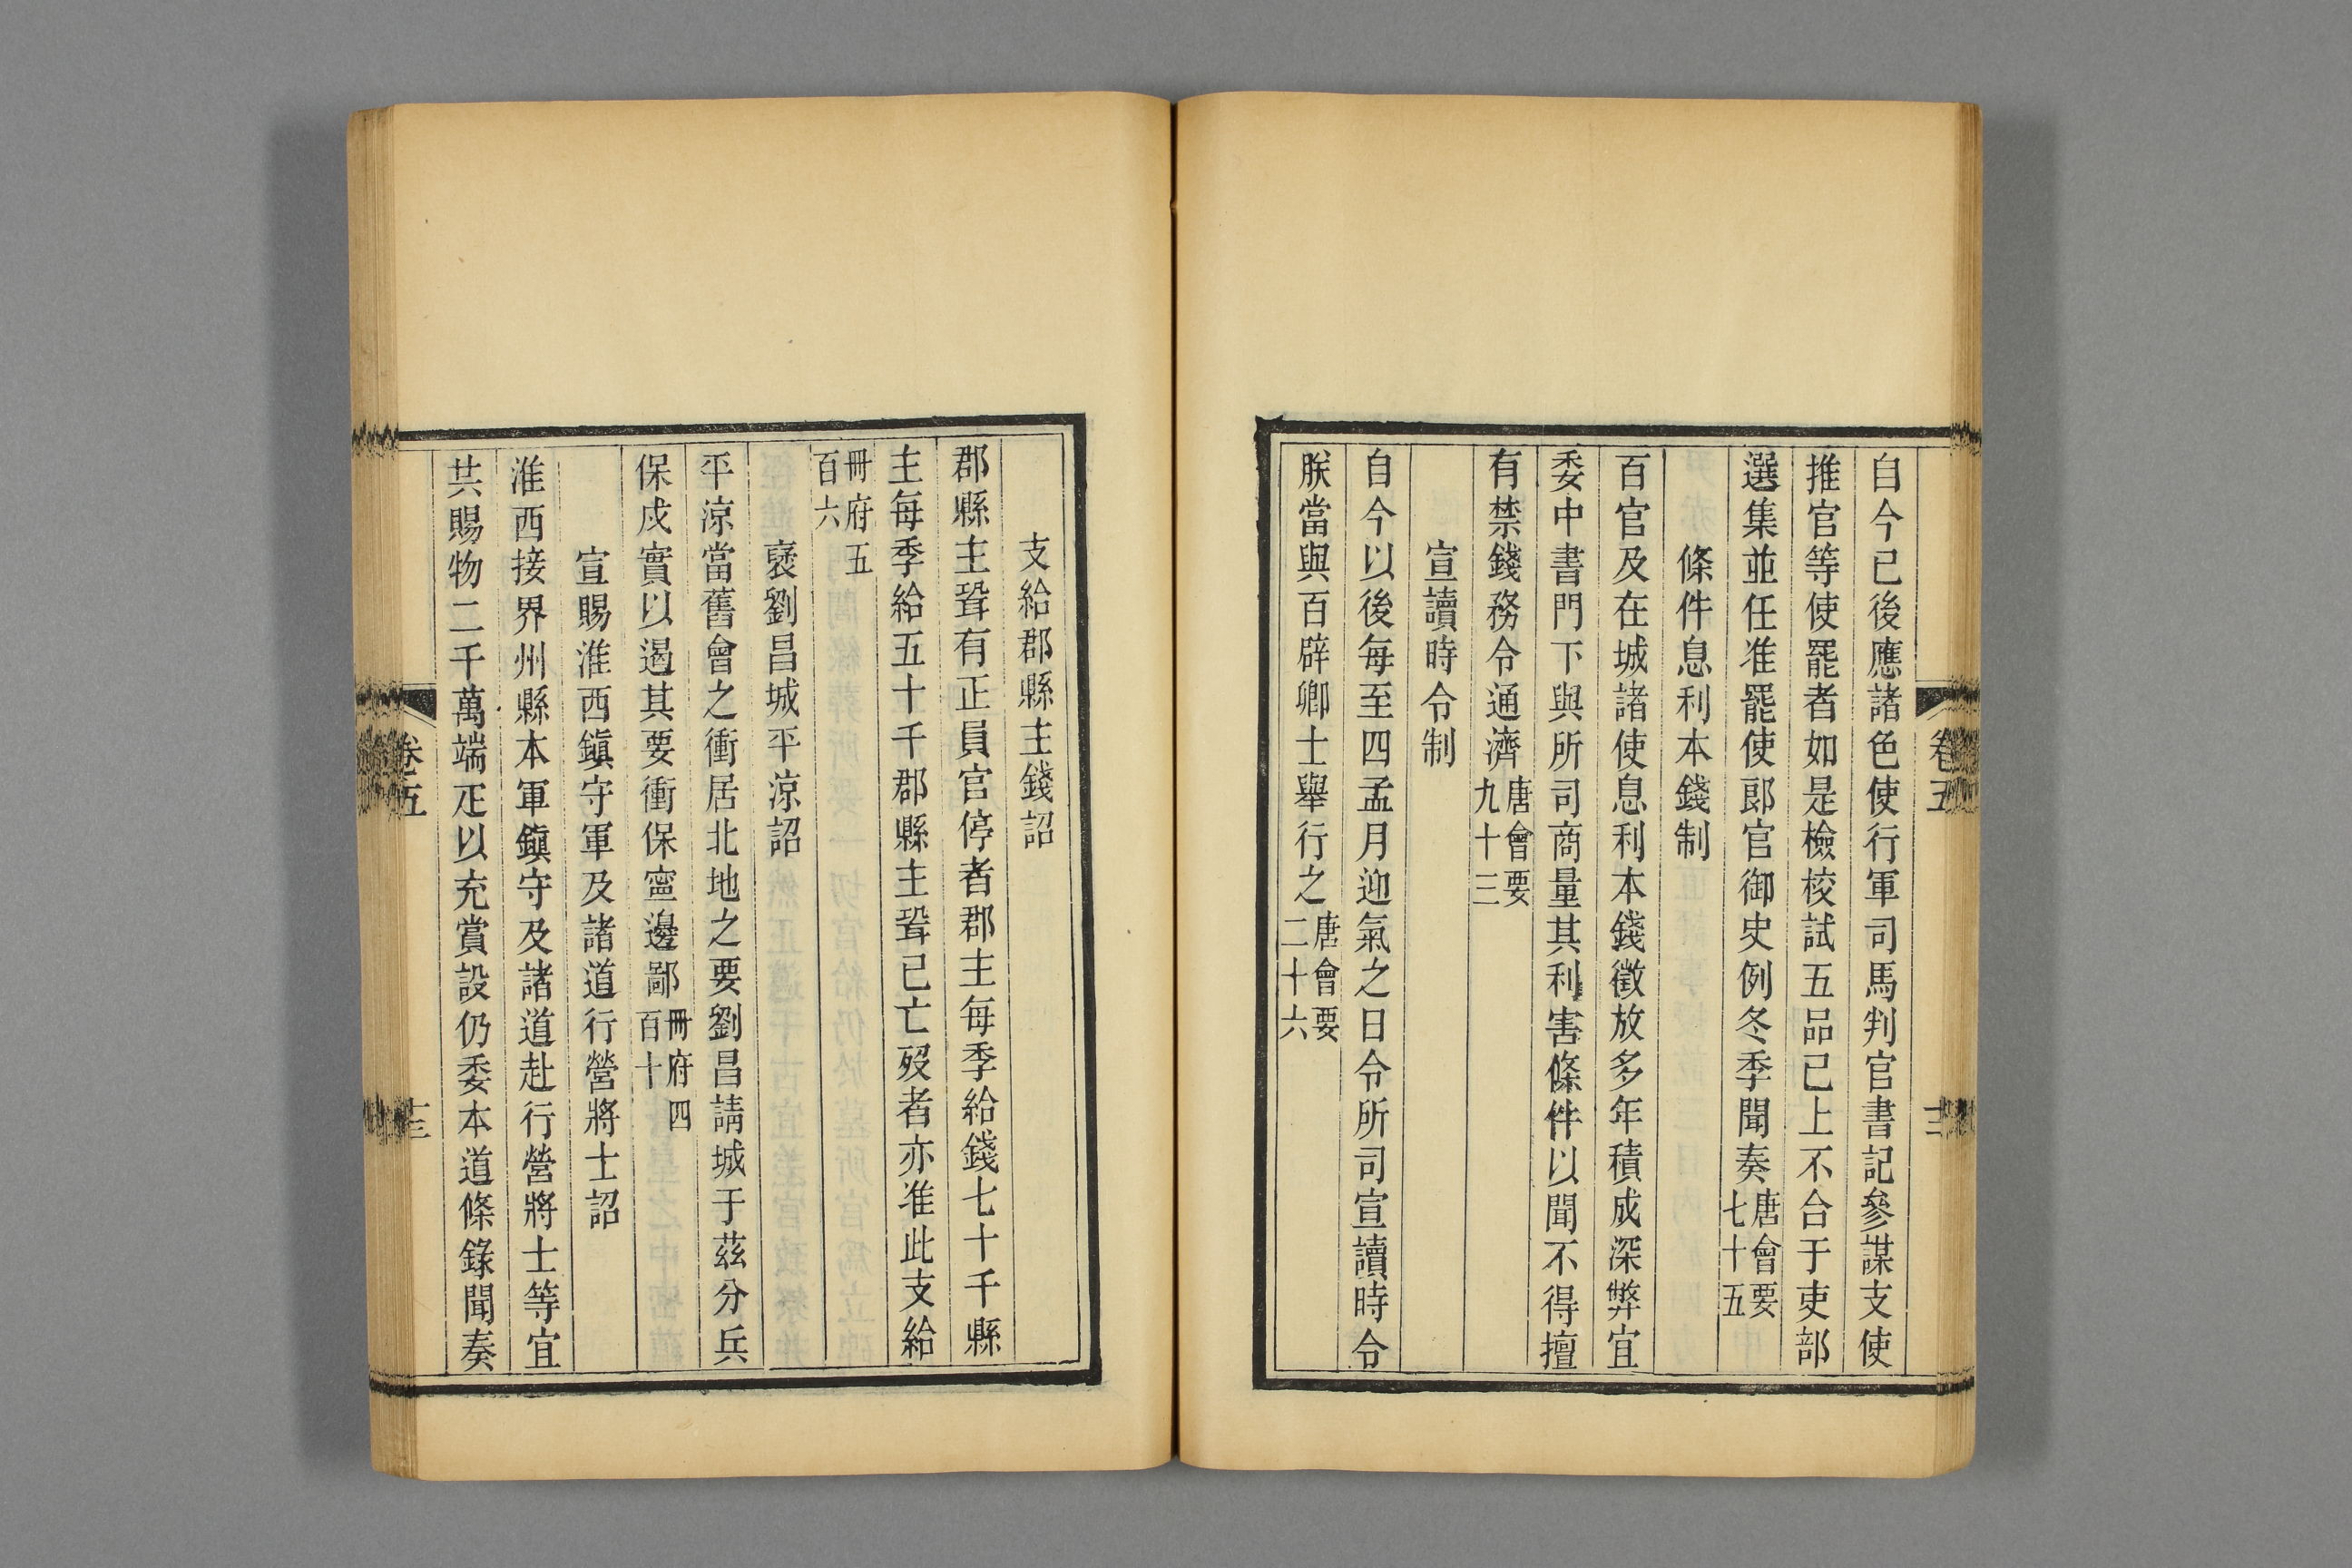 自今已後應諸色使行軍司馬判官書記參謀支使
推官等使罷者如是檢校試五品已上不合于吏部
選集並任准罷使郎官御史例冬季聞奏唐會要七十五
條件息利本錢制
百官及在城諸使息利本錢徵放多年積成深弊宜
委中書門下與所司商量其利害條件以聞不得擅
有禁錢務令通濟唐會要九十三
宣讀時令制
自今以後每至四孟月迎氣之日令所司宣讀時令
朕當與百辟卿士舉行之唐會要二十六
支給郡縣主錢詔
郡縣主聟有正員官停者郡主每季給錢七十千縣
主每季給五十千郡縣主聟已亡歿者亦准此支給
冊府五百六
襃劉昌城平涼詔
平涼當舊會之衝居北地之要劉昌請城于茲分兵
保戍實以遏其要衝保寍邊鄙冊府四百十
宣賜淮西鎭守軍及諸道行營將士詔
淮西接界州縣本軍鎭守及諸道赴行營將士等宜
共賜物二千萬端疋以充賞設仍委本道條錄聞奏
卷五
十三